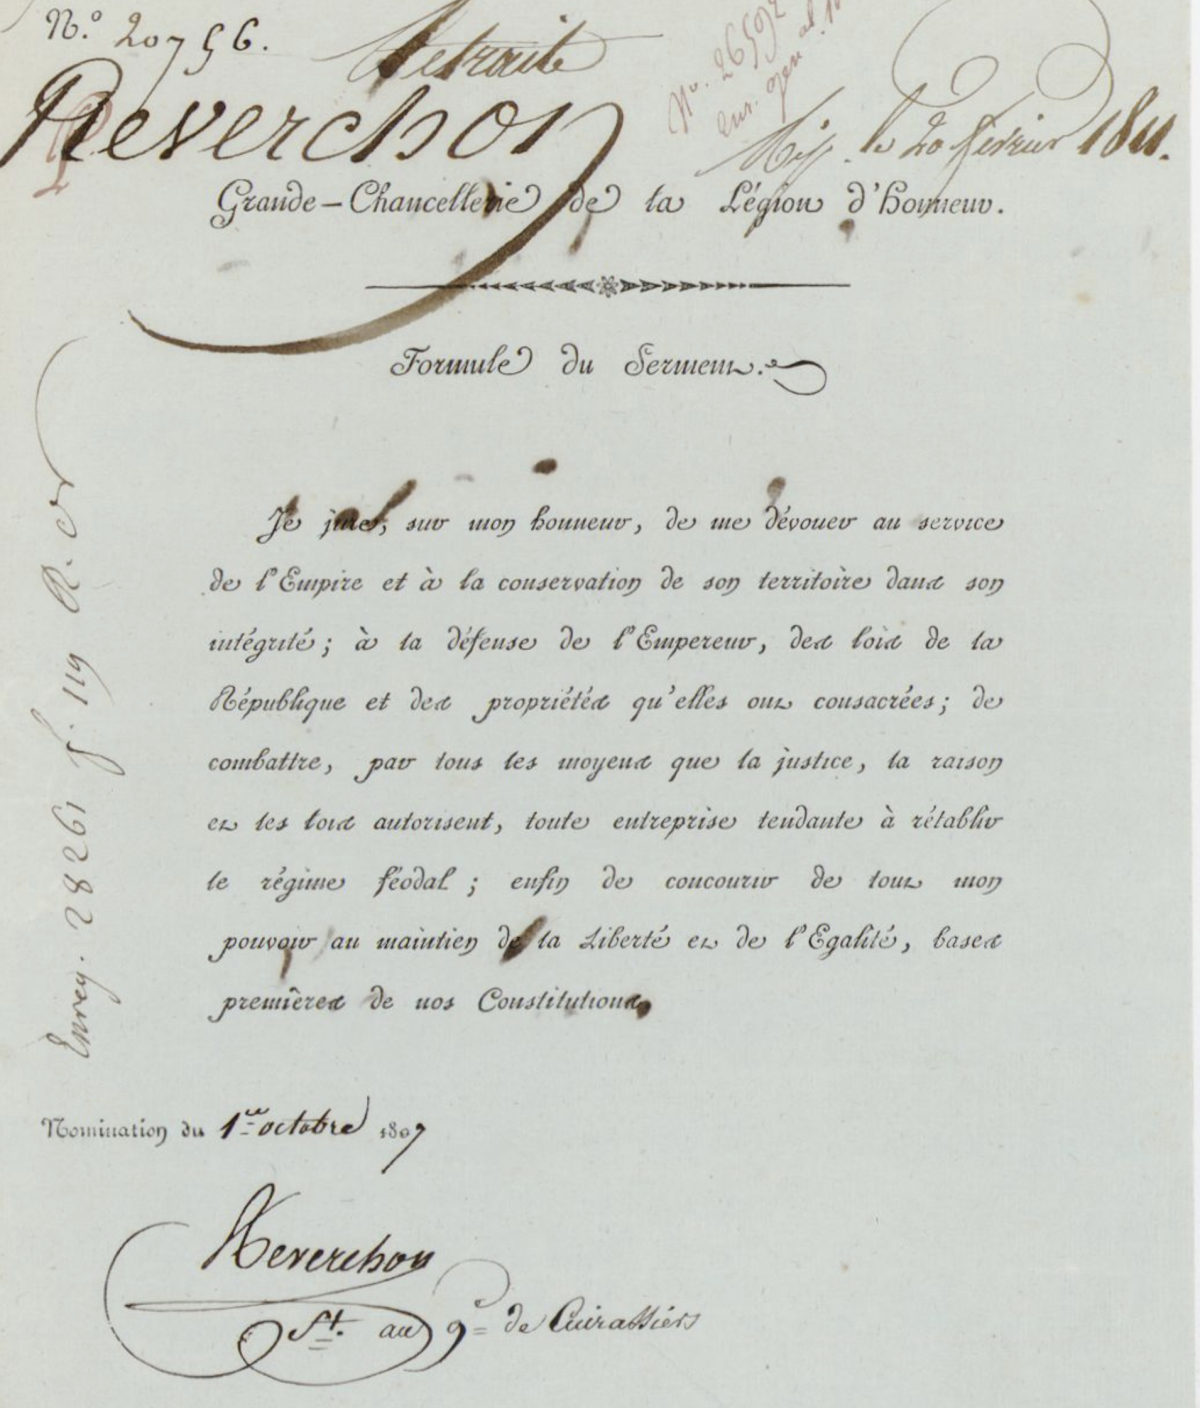 N.º 20756.
Retraite
Nº. 26592
Reverchon
le 20 février 1811.
Grande-Chancellerie de la Légion d'honneur.
Formule du Serment.
Je jure, sur mon honneur, de me dévouer au service
de l'Empire et à la conservation de son territoire dans son
intégrité ; à la défense de l'Empereur, des lois de la
République et des propriétés qu'elles ont consacrées ; de
combattre, par tous les moyens que la justice, la raison
et les lois autorisent, toute entreprise tendante à rétablir
le régime féodal ; enfin de concourir de tout mon
pouvoir au maintien de la Liberté et de l'Egalité, bases
premières de nos Constitutions.
Enreg. 28261 f. 119 R.
Nomination du 1er octobre 1807
Reverchon
St. au 9e de Cuirassiers